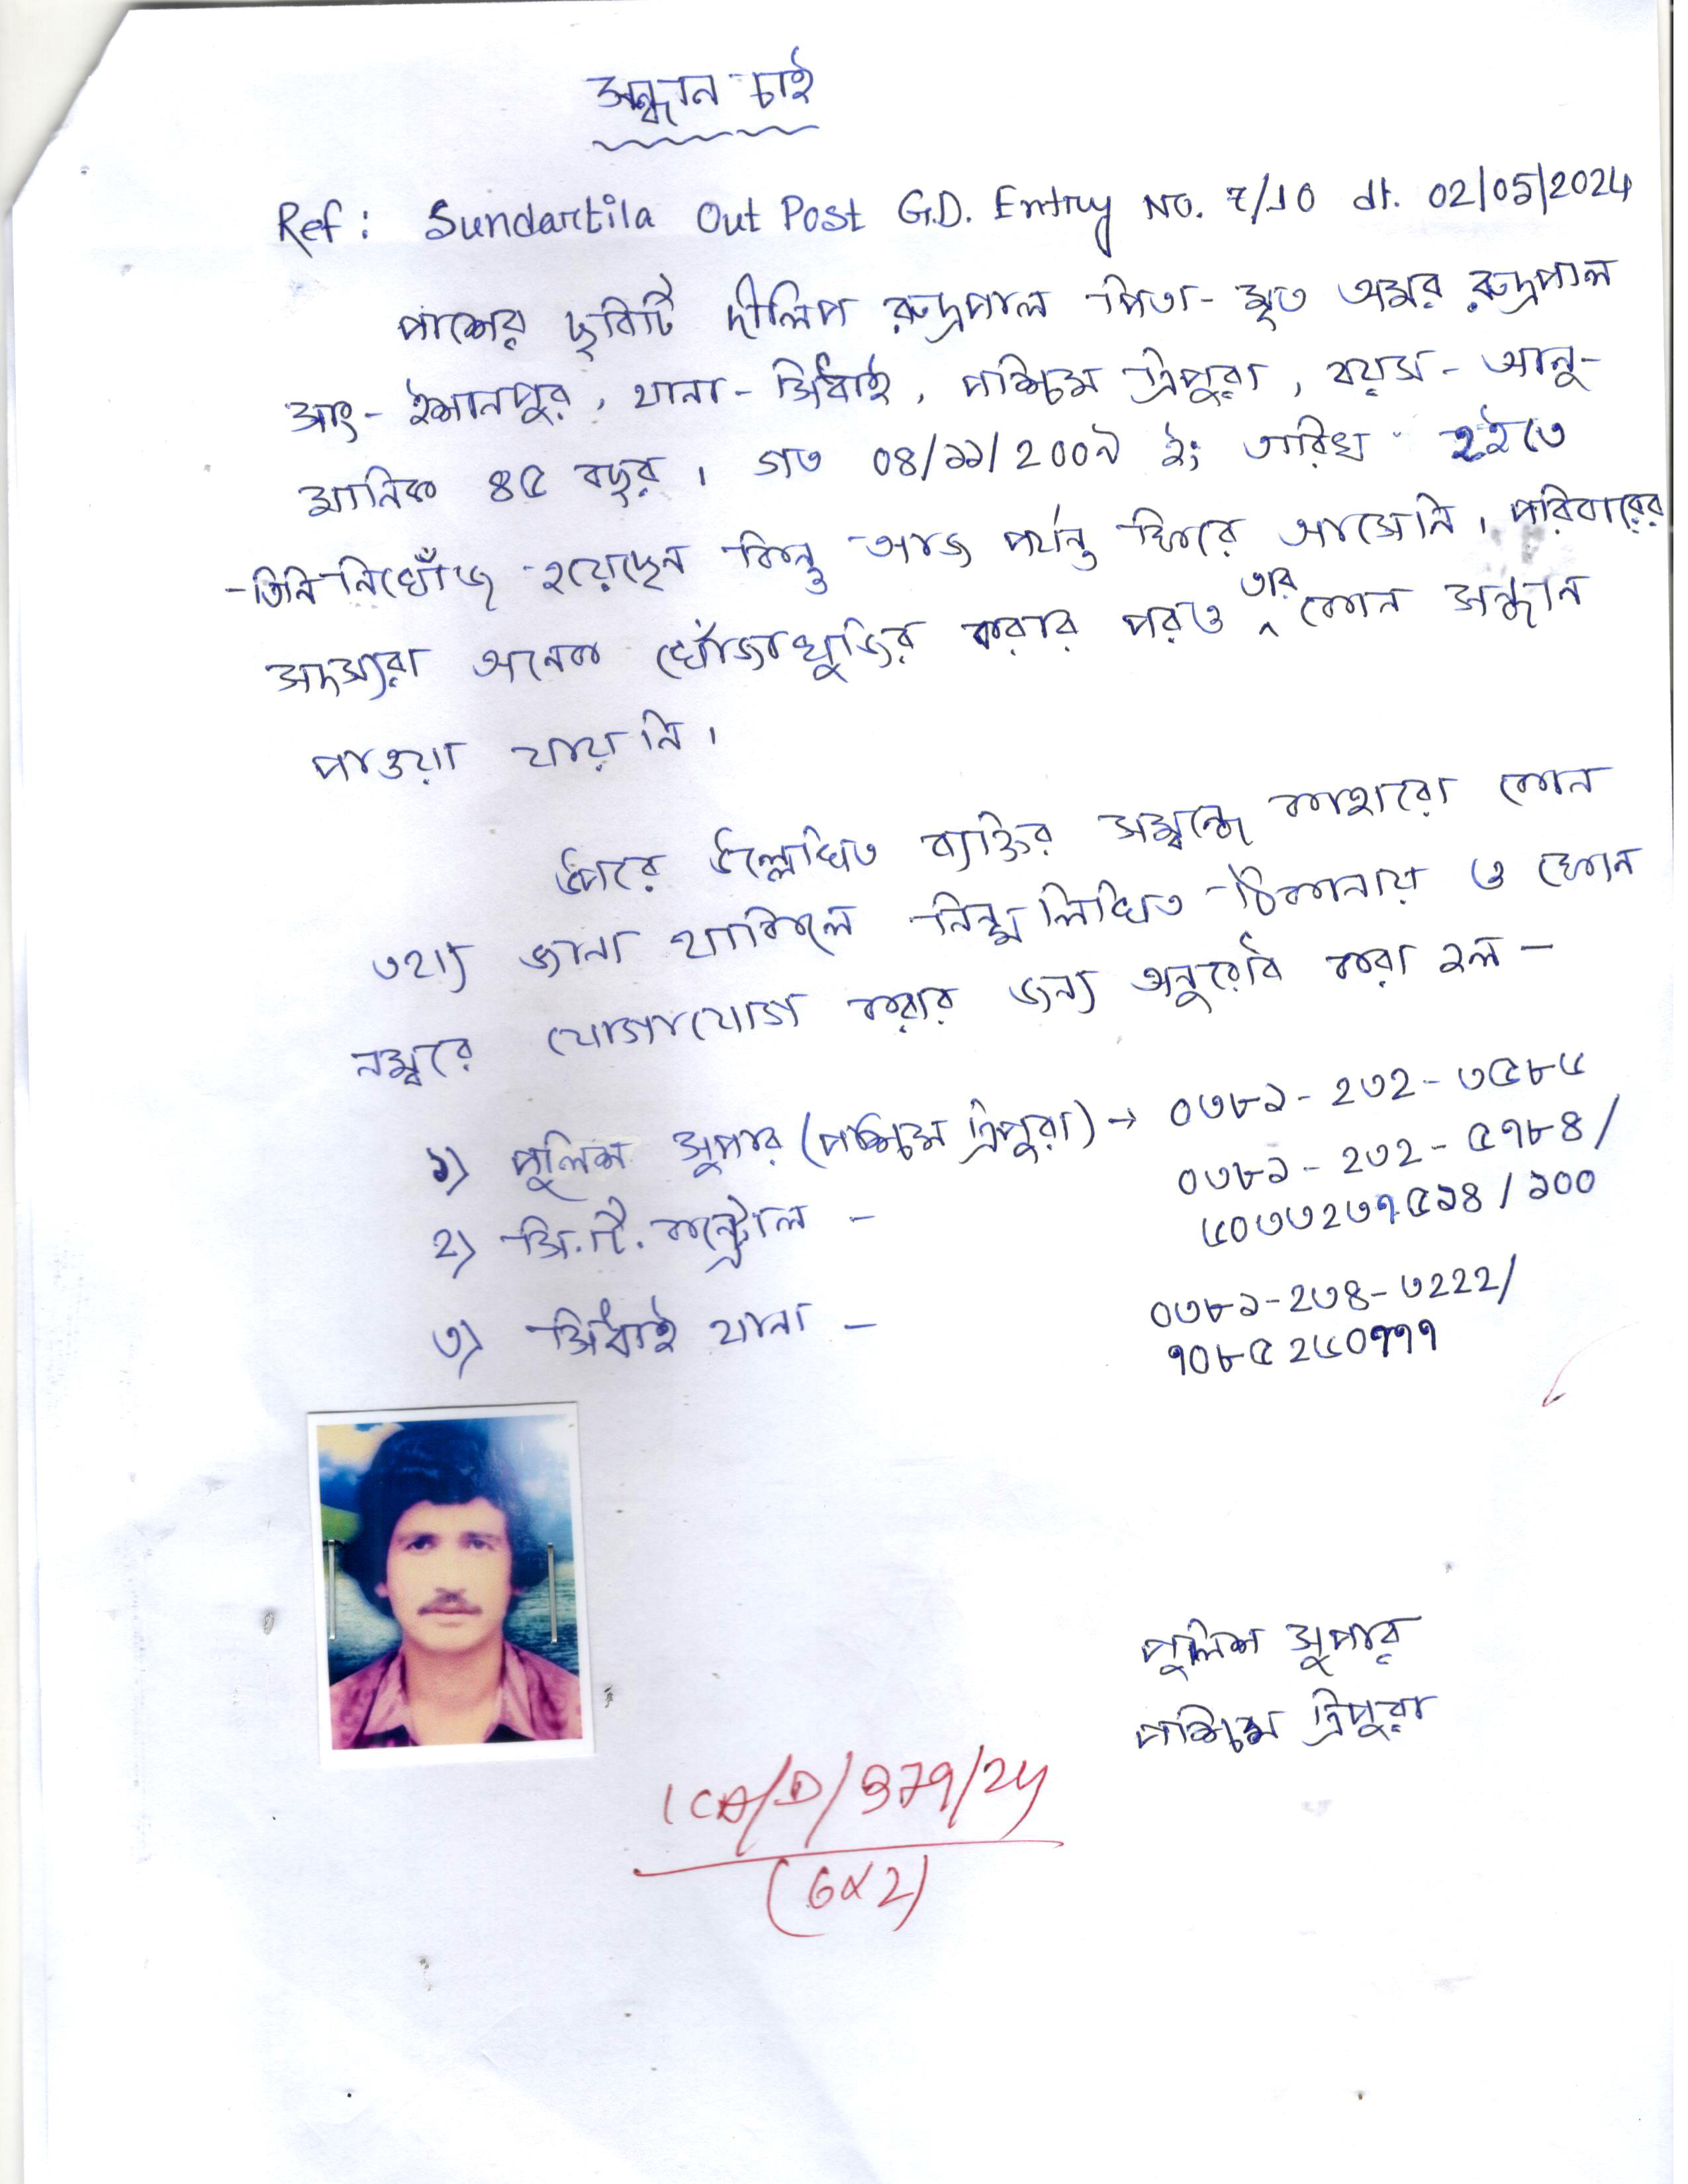 সন্ধান চাই
Ref: Sundartila Out Post G.D. Entry No. 7/10 dt. 02/05/2024
পাশের ছবিটি দীলিপ রুদ্রপাল পিতা- মৃত অমর রুদ্রপাল
সাং- ঈশানপুর, থানা- সিধাই, পশ্চিম ত্রিপুরা, বয়স- আনু-
মানিক ৪৫ বছর। গত 0৪/১১/২00৯ ইং তারিখ হইতে
তিনি নিখোঁজ হয়েছেন কিন্তু আজ পর্যন্ত ফিরে আসেনি। পরিবারের
সদস্যরা অনেক খোঁজাখুজির করার পরও তার কোন সন্ধান
পাওয়া যায়নি।
উপরে উল্লেখিত ব্যক্তির সম্বন্ধে কাহারো কোন
তথ্য জানা থাকিলে নিম্ন লিখিত ঠিকানায় ও ফোন
নম্বরে যোগাযোগ করার জন্য অনুরোধ করা হল —
১) পুলিশ সুপার (পশ্চিম ত্রিপুরা) → ০৩৮১- ২৩২- ৩৫৮৬
২) সি.টি. কন্ট্রোল — ০৩৮১- ২৩২- ৫৭৮৪/
৬০৩৩২৩৭৫১৪/১০০
৩) সিধাই থানা — ০৩৮১-২৩৪-৩২২২/
৭০৮৫২৬০৭৭৭
পুলিশ সুপার
পশ্চিম ত্রিপুরা
ICA/D/379/24
(6x2)